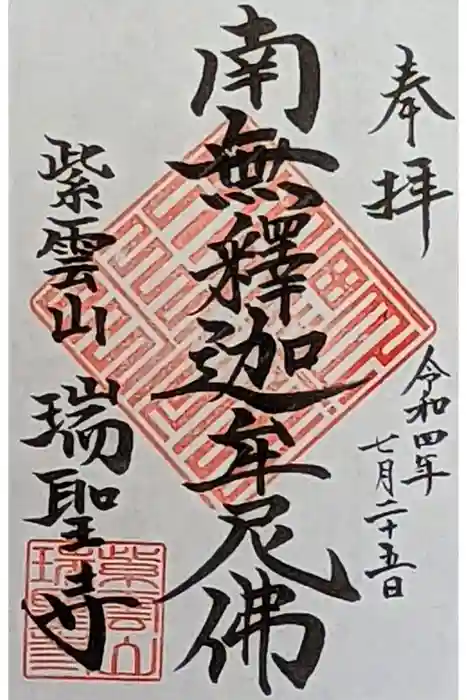 奉拝
令和四年
七月二十五日
南無釋迦牟尼佛
紫雲山
瑞聖寺